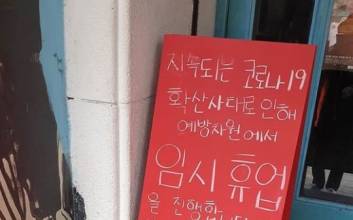 지속되는 코로나19
확산사태로 인해
예방차원에서
임시 휴업
을 진행합니다